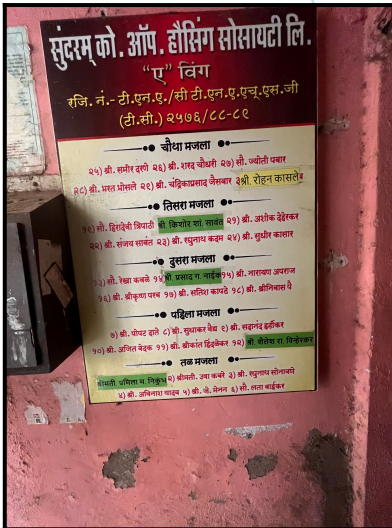 सुंदरम् को. ऑप. हौसिंग सोसायटी लि.
"ए" विंग
रजि. नं.- टी.एन.ए./सी टी.एन.ए.एच्.एस.जी
(टी.सी.) २५७६/८८-८९
चौथा मजला
२५) श्री. समीर दरणे २६) श्री. शरद चौधरी २७) सौ. ज्योती पवार
२८) श्री. भरत भोसले २९) श्री. चंद्रिकाप्रसाद जैसवार ३श्री. रोहन कासले
तिसरा मजला
१९) सौ. हिरादेवी त्रिपाठी श्री. किशोर शां. सावंत २१) श्री. अशोक देहेरकर
२२) श्री. संजय सावंत २३) श्री. रघुनाथ कदम २४) श्री. सुधीर कासार
दुसरा मजला
१३) सौ. रेखा कवळे १४ श्री. प्रसाद ग. नाईक १५) श्री. नारायण अपराज
१६) श्री. श्रीकृष्ण परब १७) श्री. सतिश कापडे १८) श्री. श्रीनिवास पै
पहिला मजला
७) श्री. पोपट दाते ८) श्री. सुधाकर वैद्य ९) श्री. सदानंद हर्डीकर
१०) श्री. अजित वेदक ११) श्री. श्रीकांत हिंदळेकर १२) श्री. शैलेश रा. विन्हेरकर
तळ मजला
श्रीमती. प्रमिला म. निकुंभ २) श्रीमती. उषा कबरे ३) श्री. रघुनाथ सोनावणे
४) श्री. अविनाश यादव ५) श्री. जे. मेनन ६) सौ. लता बाईकर